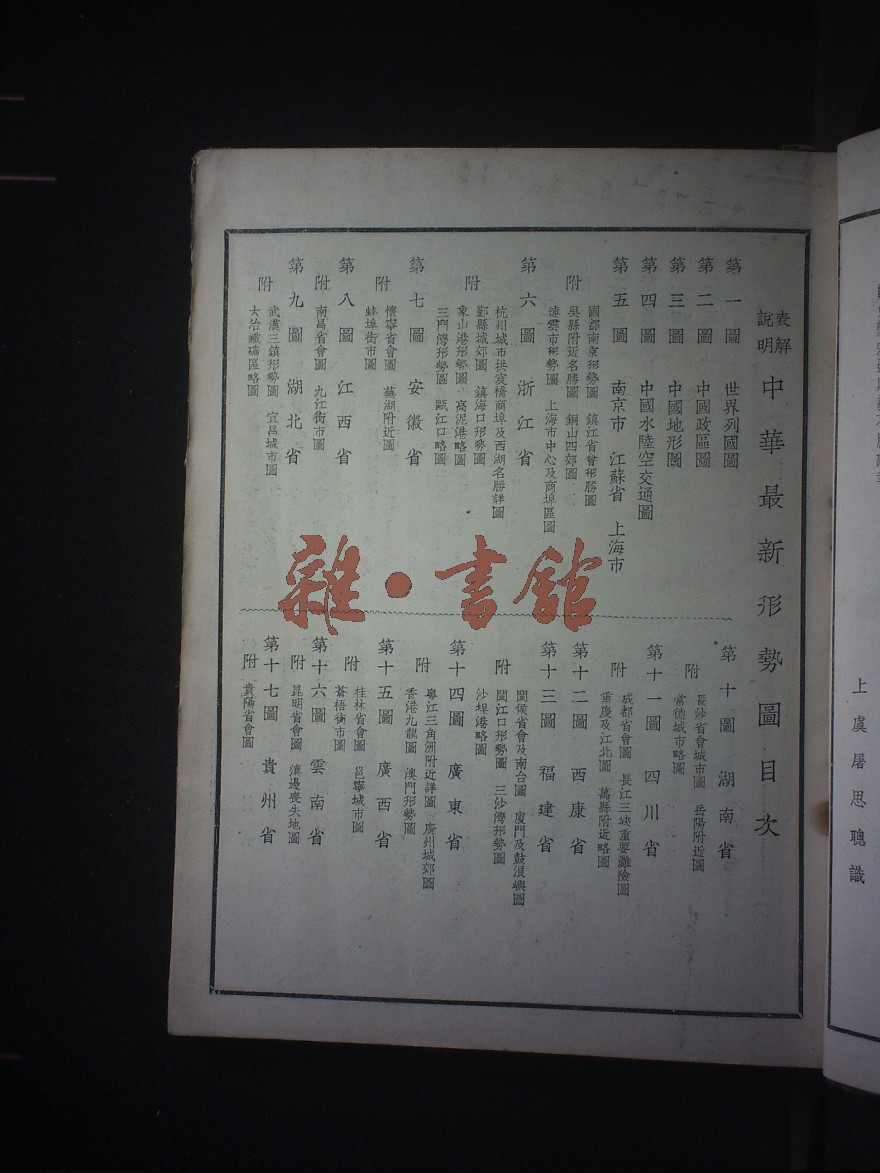 表解說明中華最新形勢圖目次
第一圖 世界列國圖
第二圖 中國政區圖
第三圖 中國地形圖
第四圖 中國水陸空交通圖
第五圖 南京市 江蘇省 上海市
國都南京形勢圖 鎮江省會形勝圖
附 吳縣附近名勝圖 銅山四郊圖
連雲市形勢圖 上海市中心及商埠區圖
第六圖 浙江省
杭州城市拱宸橋商埠及西湖名勝詳圖
附 鄞縣城郊圖 鎮海口形勢圖
象山港形勢圖 高泥港略圖
三門灣形勢圖 甌江口略圖
第七圖 安徽省
附 懷寧省會圖 蕪湖附近圖
蚌埠街市圖
第八圖 江西省
附 南昌省會圖 九江街市圖
第九圖 湖北省
附 武漢三鎮形勢圖 宜昌城市圖
大冶鐵礦區略圖
第十圖 湖南省
附 長沙省會城市圖 岳陽附近圖
常德城市略圖
第十一圖 四川省
附 成都省會圖 長江三峽重要灘險圖
重慶及江北圖 萬縣附近略圖
第十二圖 西康省
第十三圖 福建省
閩侯省會及南台圖 廈門及鼓浪嶼圖
附 閩江口形勢圖 三沙灣形勢圖
沙埕港略圖
第十四圖 廣東省
附 粵江三角洲附近詳圖 廣州城郊圖
香港九龍圖 澳門形勢圖
第十五圖 廣西省
附 桂林省會圖 邕寧城市圖
蒼梧街市圖
第十六圖 雲南省
附 昆明省會圖 滇邊喪失地圖
第十七圖 貴州省
附 貴陽省會圖
上虞屠思聰識
雜·書館